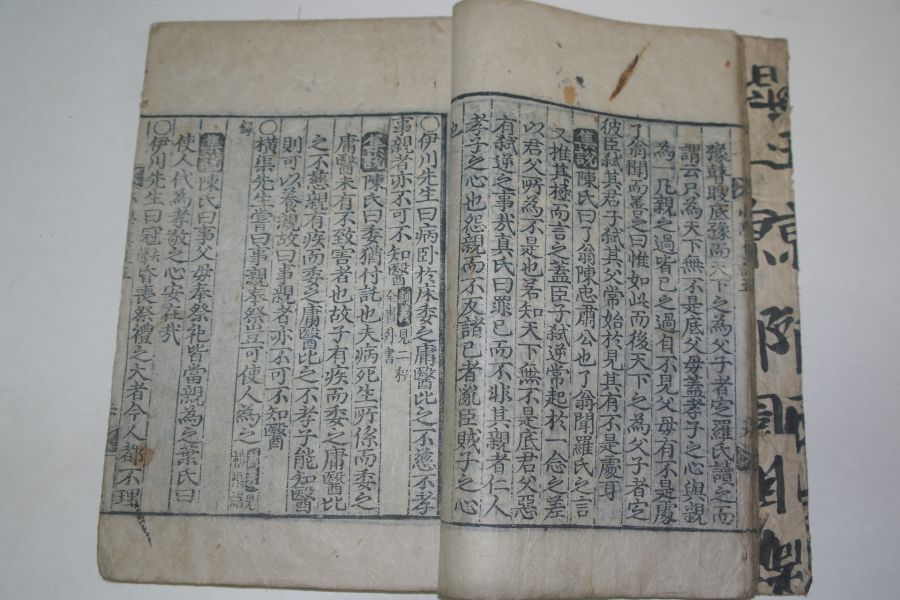 豫瞽瞍底豫而天下之為父子者定羅氏讀之而
謂云只為天下無不是底父母蓋孝子之心與親
為一凡親之過皆己之過自不見父母有不是處
了翁聞而善之曰惟如此而後天下之為父子者定
彼臣弑其君子弑其父常始於見其有不是處耳
集說陳氏曰了翁陳忠肅公也了翁聞羅氏之言
又推其極而言之蓋臣子弑逆常起於一念之差
以君父所為不是也若知天下無不是底君父惡
有弑逆之事哉真氏曰罪己而不非其親者仁人
孝子之心也怨親而不反諸己者亂臣賊子之心
也
○伊川先生曰病臥於床委之庸醫比之不慈不孝
事親者亦不可不知醫 見二程全書外書
集說陳氏曰委猶付託也夫病死生所係而委之
庸醫未有不致害者也故子有疾而委之庸醫比
之不慈親有疾而委之庸醫比之不孝子能知醫
則可以養親故曰事親者亦不可不知醫
○橫渠先生嘗曰事親奉祭豈可使人為之
錄
集說陳氏曰事父母奉祭祀皆當親為之葉氏曰
使人代為孝敬之心安在哉
○伊川先生曰冠昏喪祭禮之大者今人都不理